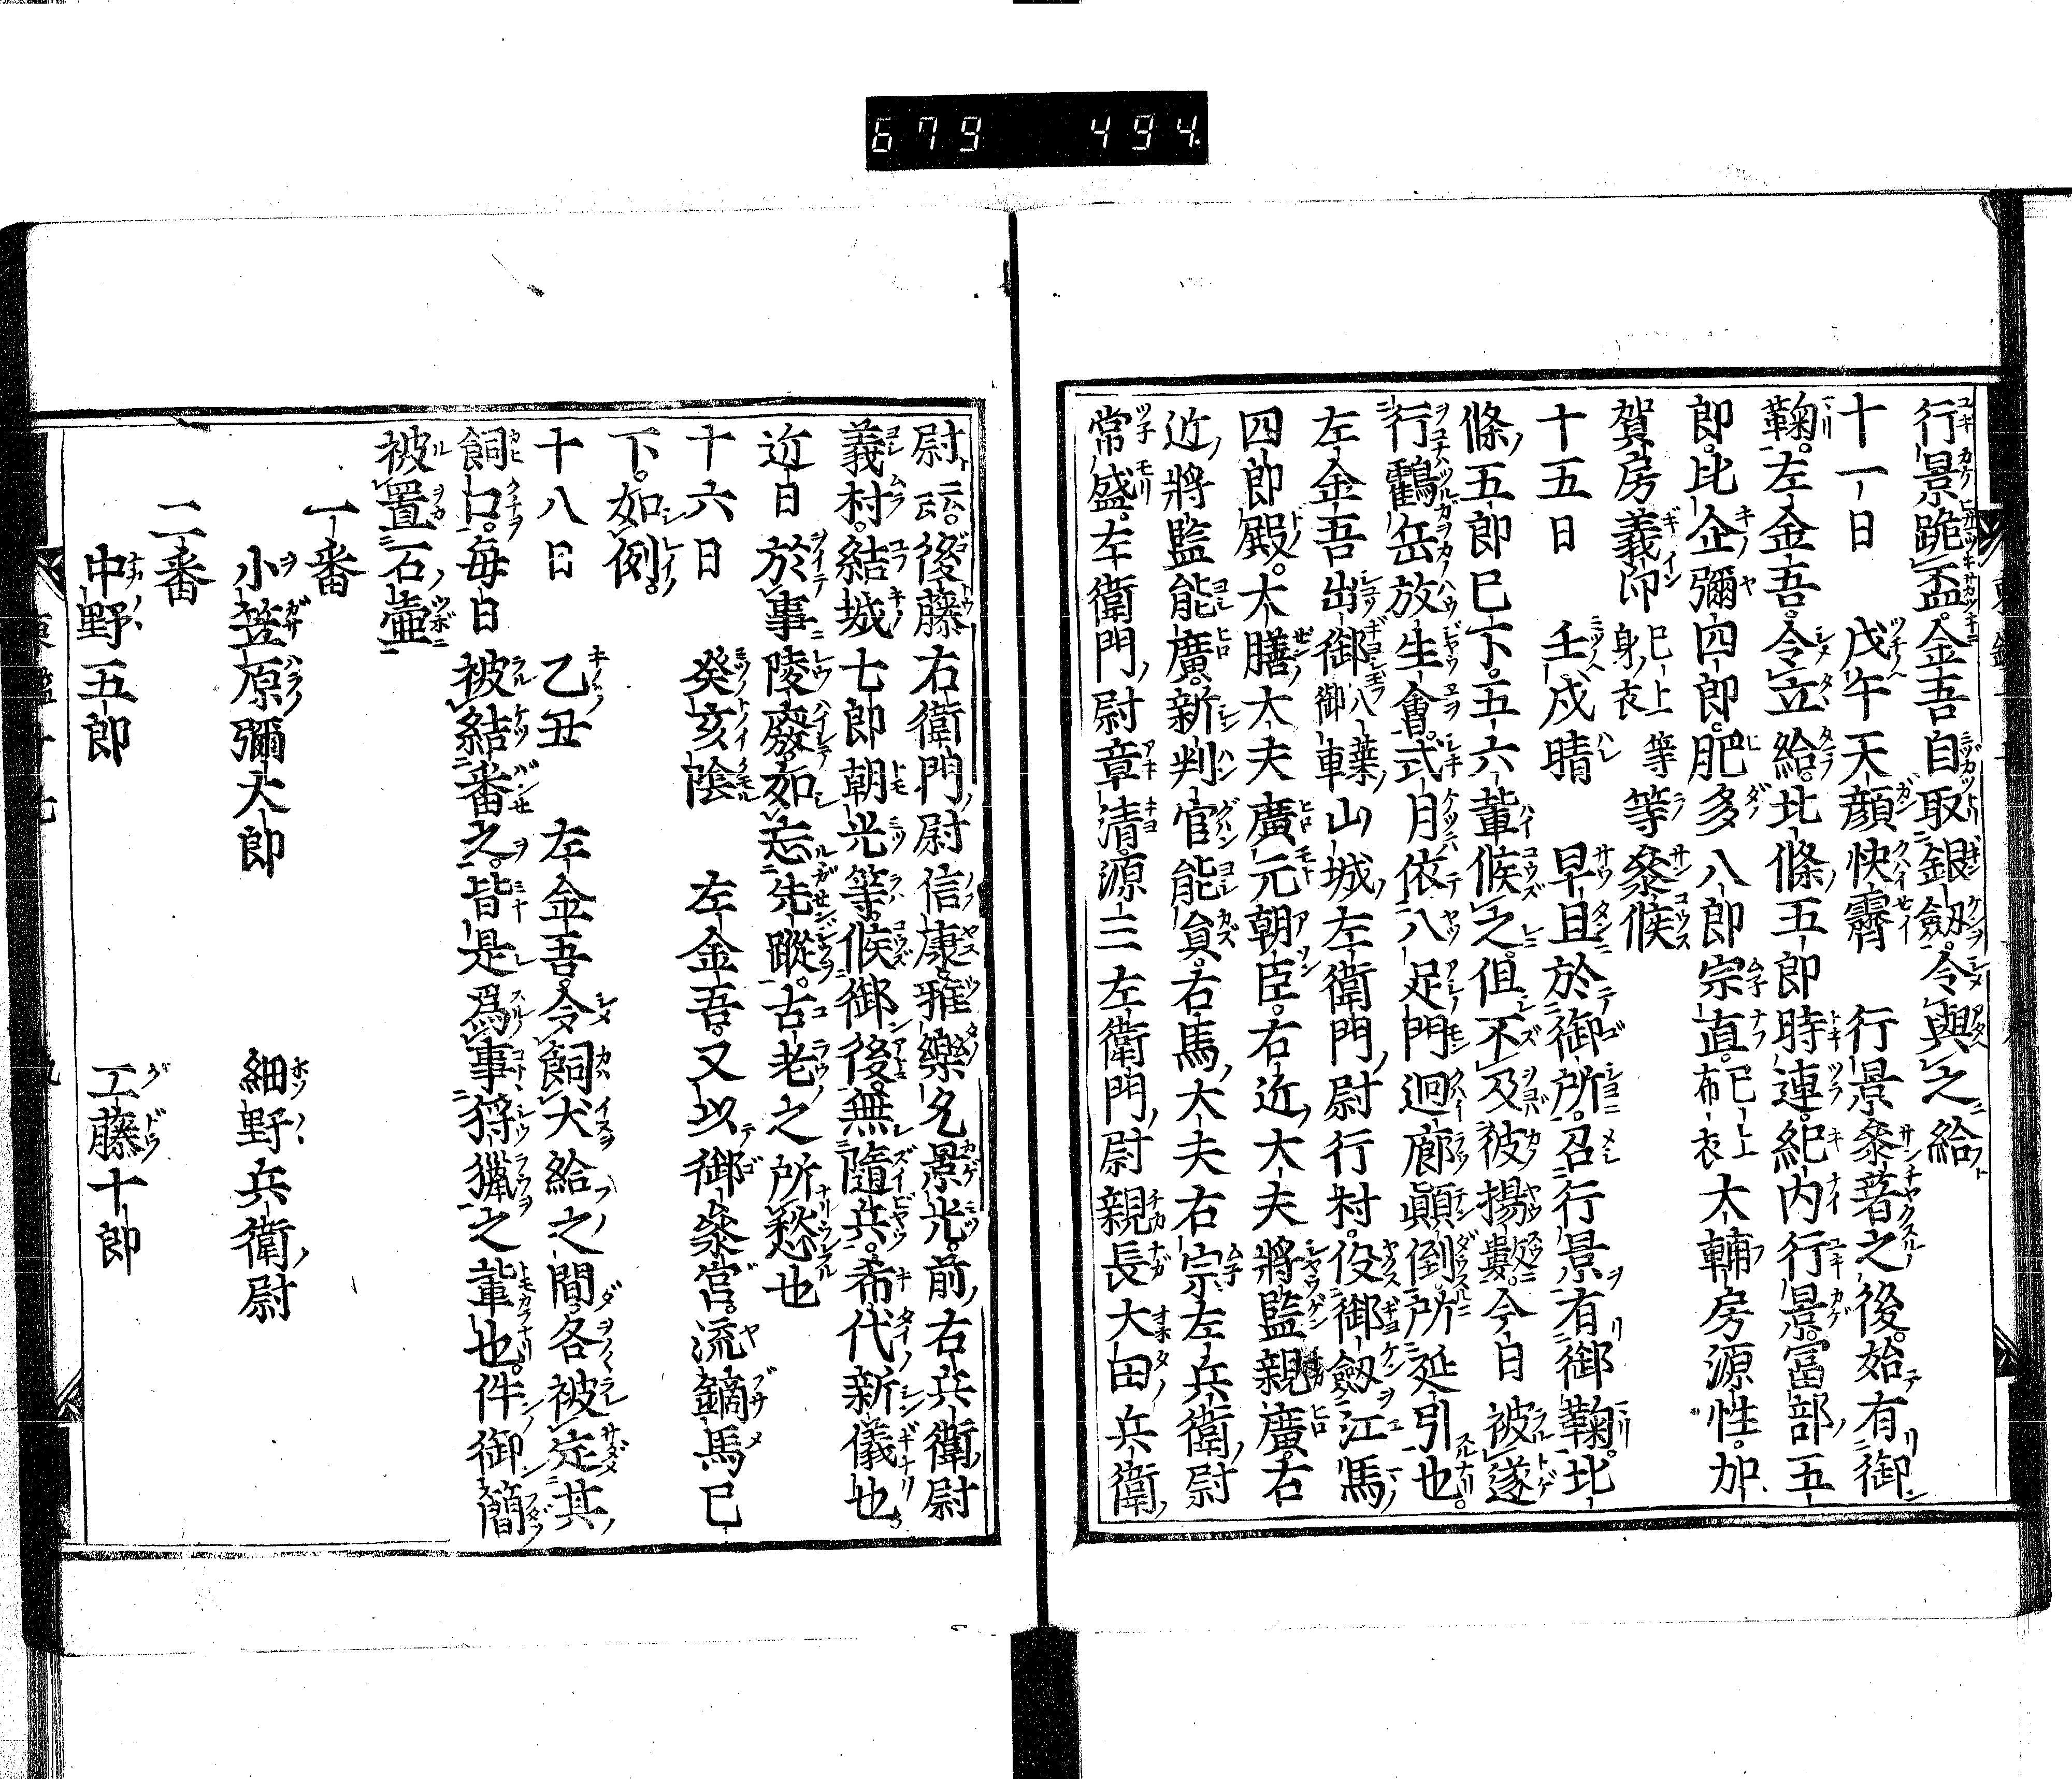 679 494
行景跪盃。金吾自取銀劔。令與之給
十一日 戊午天顔快霽 行景參著之後。始有御
鞠。左金吾。令立給。北條五郎時連。紀内行景。冨部五
郎。比企彌四郎。肥多八郎宗直。已上布衣大輔房源性。加
賀房義印已上身衣等等參候
十五日 壬戌晴 早旦於御所。召行景有御鞠。北
條五郎已下。五六輩候之。但不及彼揚數。今日被遂
行鶴岳放生會。式月依八足門廻廊顛倒。所延引也
左金吾出御八葉御車山城左衛門尉行村。役御劔江馬
四郎殿。大膳大夫廣元朝臣。右近大夫將監親廣。右
近將監能廣。新判官能員。右馬大夫右宗左兵衛尉
常盛。左衛門尉章清。源三左衛門尉親長大田兵衛
尉云云。後藤右衛門尉信康。雅樂允景光。前右兵衛尉
義村。結城七郎朝光等。候御後。無隨兵。希代新儀也
近日於事陵廢。如忘先蹤。古老之所愁也
十六日 癸亥陰 左金吾。又以御參宮。流鏑馬已
下。如例。
十八日 乙丑 左金吾。令飼犬給之間。各被定其
飼口。毎日被結番之。皆是爲事狩獵之輩也。件御簡
被置石壷
一番
小笠原彌太郎 細野兵衛尉
二番
中野五郎 工藤十郎